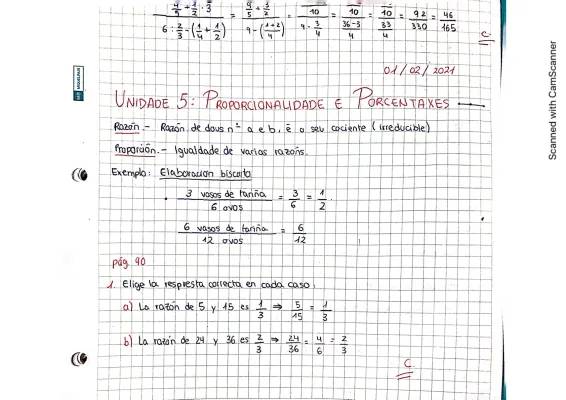 6 : 2/3 - (1/4 + 1/2) 9 - ((1+2)/4) 9 - 3/4 (36-3)/4 33/4 = 92/330 = 46/165
C
01/02/2021
UNIDADE 5: PROPORCIONALIDADE E PORCENTAXES
Razón.- Razón de dous nº a e b, é o seu cociente (irreducible)
Proporción.- Igualdade de varias razóns.
Exemplo: Elaboración biscoito
3 vasos de fariña / 6 ovos = 3/6 = 1/2
6 vasos de fariña / 12 ovos = 6/12
pág 90
1. Elige la respuesta correcta en cada caso:
a) La razón de 5 y 15 es 1/3 ⇒ 5/15 = 1/3
b) La razón de 24 y 36 es 2/3 ⇒ 24/36 = 4/6 = 2/3
C
Scanned with CamScanner